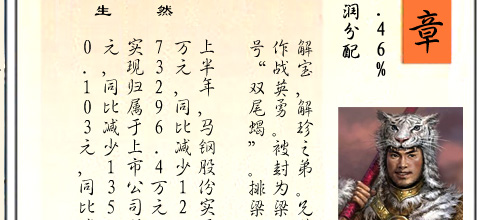 章
.46%
润分配
解宝，解珍之弟。兄
作战英勇。被封为梁
号“双尾蝎”。排梁
生 然
上半年，马钢股份实
万元，同比减少12
73296.4万元
实现归属于上市公司
元，同比减少135
0.103元，同比